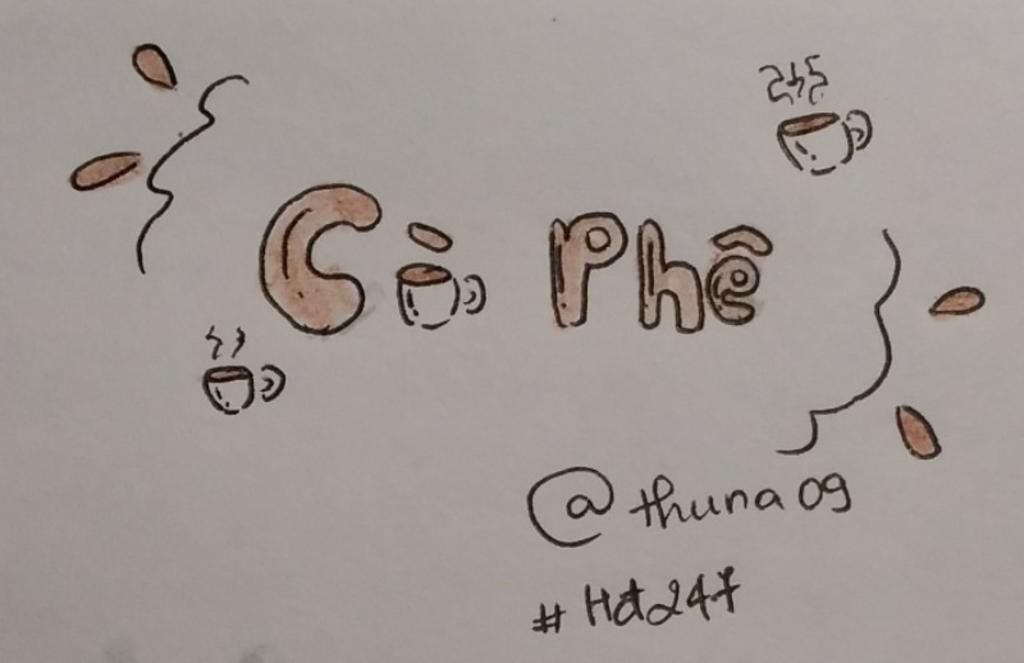 Cà Phê
@thuna09
#Hd247